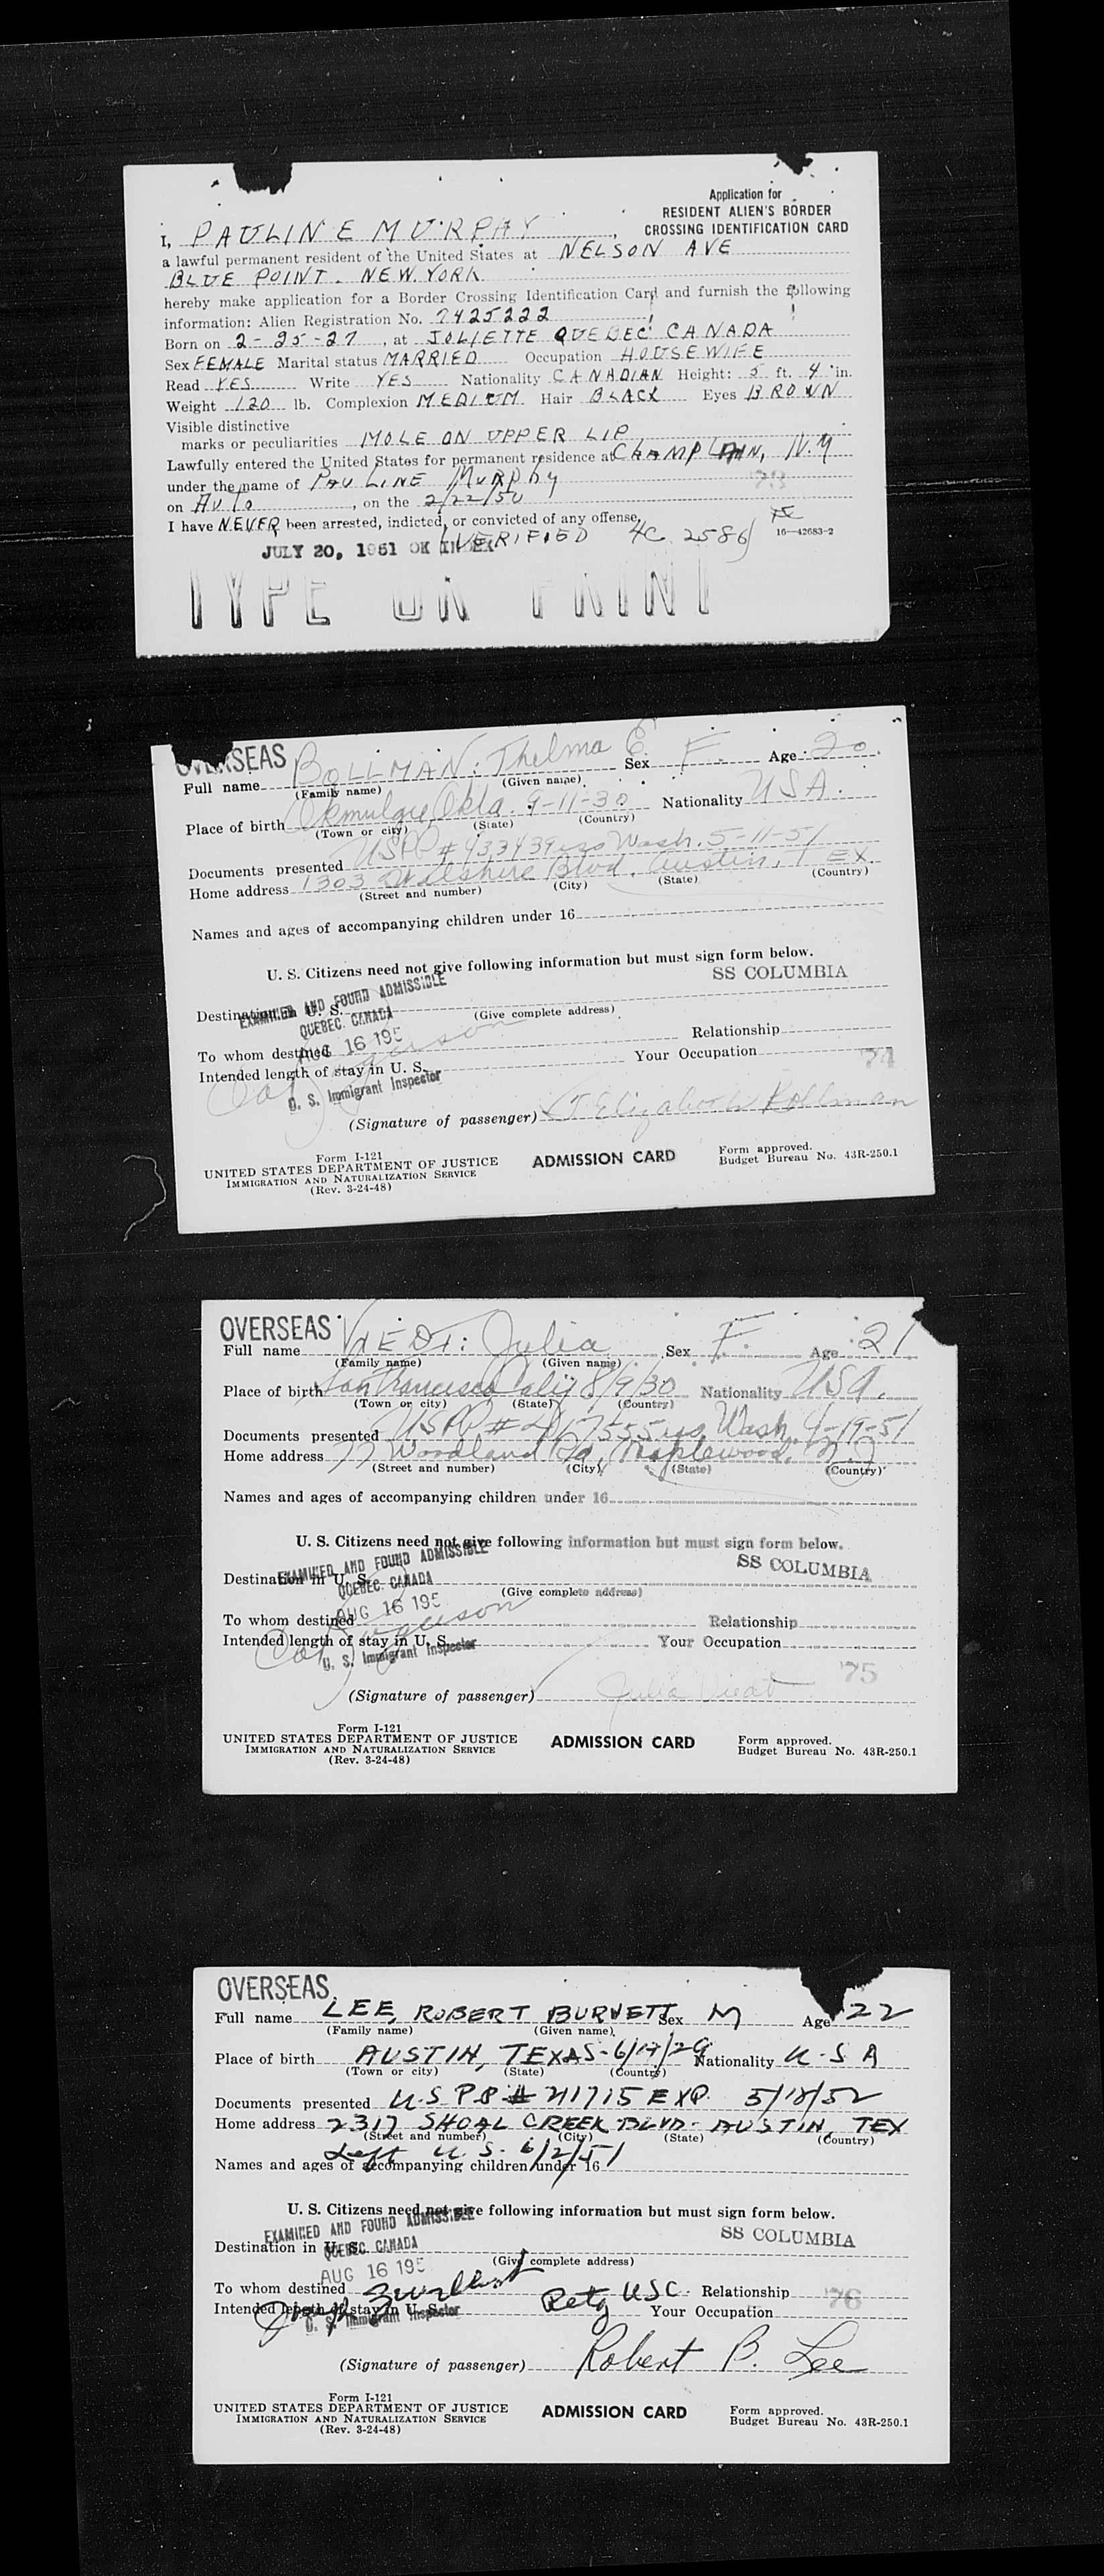 Application for
RESIDENT ALIEN'S BORDER
CROSSING IDENTIFICATION CARD
I, PAULINE MURPHY,
a lawful permanent resident of the United States at NELSON AVE
BLUE POINT. NEW YORK
hereby make application for a Border Crossing Identification Card and furnish the following
information: Alien Registration No. 7425222
Born on 2-25-27, at JOLIETTE QUEBEC CANADA
Sex FEMALE Marital status MARRIED Occupation HOUSEWIFE
Read YES Write YES Nationality CANADIAN Height: 5 ft. 4 in.
Weight 120 lb. Complexion MEDIUM Hair BLACK Eyes BROWN
Visible distinctive
marks or peculiarities MOLE ON UPPER LIP
Lawfully entered the United States for permanent residence at CHAMPLAIN, N.Y
under the name of PAULINE MURPHY
73
on Auto, on the 2/22/50
I have NEVER been arrested, indicted, or convicted of any offense.
JULY 20, 1951 OK INDEX VERIFIED 4C 2586
16—42683-2
TYPE OR PRINT
OVERSEAS
Full name BOLLMAN: Thelma E Sex F. Age 20
(Family name) (Given name)
Place of birth Okmulgee, Okla. 9-11-30 Nationality USA.
(Town or city) (State) (Country)
Documents presented USPP # 433439 iss Wash. 5-11-51
Home address 1303 Wilshire Blvd. Austin, TEX.
(Street and number) (City) (State) (Country)
Names and ages of accompanying children under 16
U. S. Citizens need not give following information but must sign form below.
SS COLUMBIA
EXAMINED AND FOUND ADMISSIBLE
Destination in U. S.
(Give complete address)
QUEBEC. CANADA
AUG 16 195
To whom destined Relationship
Intended length of stay in U. S. Your Occupation
74
U. S. Immigrant Inspector
(Signature of passenger) T Elizabeth Bollman
Form I-121
UNITED STATES DEPARTMENT OF JUSTICE
IMMIGRATION AND NATURALIZATION SERVICE
(Rev. 3-24-48)
ADMISSION CARD
Form approved.
Budget Bureau No. 43R-250.1
OVERSEAS
Full name VIEDT: Julia Sex F. Age 21
(Family name) (Given name)
Place of birth San Francisco Calif 8/9/30 Nationality USA.
(Town or city) (State) (Country)
Documents presented USPP # 417555 iss Wash. 4-19-51
Home address 77 Woodland Rd, Maplewood, N.J
(Street and number) (City) (State) (Country)
Names and ages of accompanying children under 16
U. S. Citizens need not give following information but must sign form below.
SS COLUMBIA
EXAMINED AND FOUND ADMISSIBLE
Destination in U. S.
(Give complete address)
QUEBEC. CANADA
AUG 16 195
To whom destined Relationship
Intended length of stay in U. S. Your Occupation
U. S. Immigrant Inspector
75
(Signature of passenger) Julia Viedt
Form I-121
UNITED STATES DEPARTMENT OF JUSTICE
IMMIGRATION AND NATURALIZATION SERVICE
(Rev. 3-24-48)
ADMISSION CARD
Form approved.
Budget Bureau No. 43R-250.1
OVERSEAS
Full name LEE, ROBERT BURNETT Sex M Age 22
(Family name) (Given name)
Place of birth AUSTIN, TEXAS - 6/19/29 Nationality U.S A
(Town or city) (State) (Country)
Documents presented U.S PP # 21715 EXP. 5/18/52
Home address 2317 SHOAL CREEK BLVD - AUSTIN, TEX
(Street and number) (City) (State) (Country)
Left U.S. 6/2/51
Names and ages of accompanying children under 16
U. S. Citizens need not give following information but must sign form below.
SS COLUMBIA
EXAMINED AND FOUND ADMISSIBLE
Destination in U. S.
(Give complete address)
QUEBEC. CANADA
AUG 16 195
To whom destined Retg USC. Relationship
76
Intended length of stay in U. S. Your Occupation
U. S. Immigrant Inspector
(Signature of passenger) Robert B. Lee
Form I-121
UNITED STATES DEPARTMENT OF JUSTICE
IMMIGRATION AND NATURALIZATION SERVICE
(Rev. 3-24-48)
ADMISSION CARD
Form approved.
Budget Bureau No. 43R-250.1